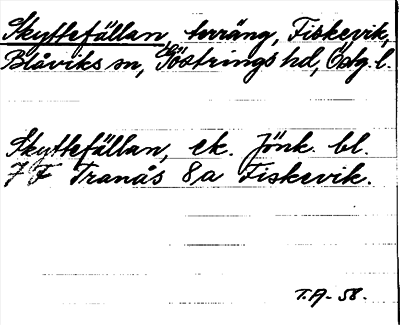 Skyttefällan, terräng, Fiskevik,
Blåviks sn, Göstrings hd, Östg. l.
Skyttefällan, ek. Jönk. bl.
7 F Tranås 8,a Fiskevik.
T.A-58.